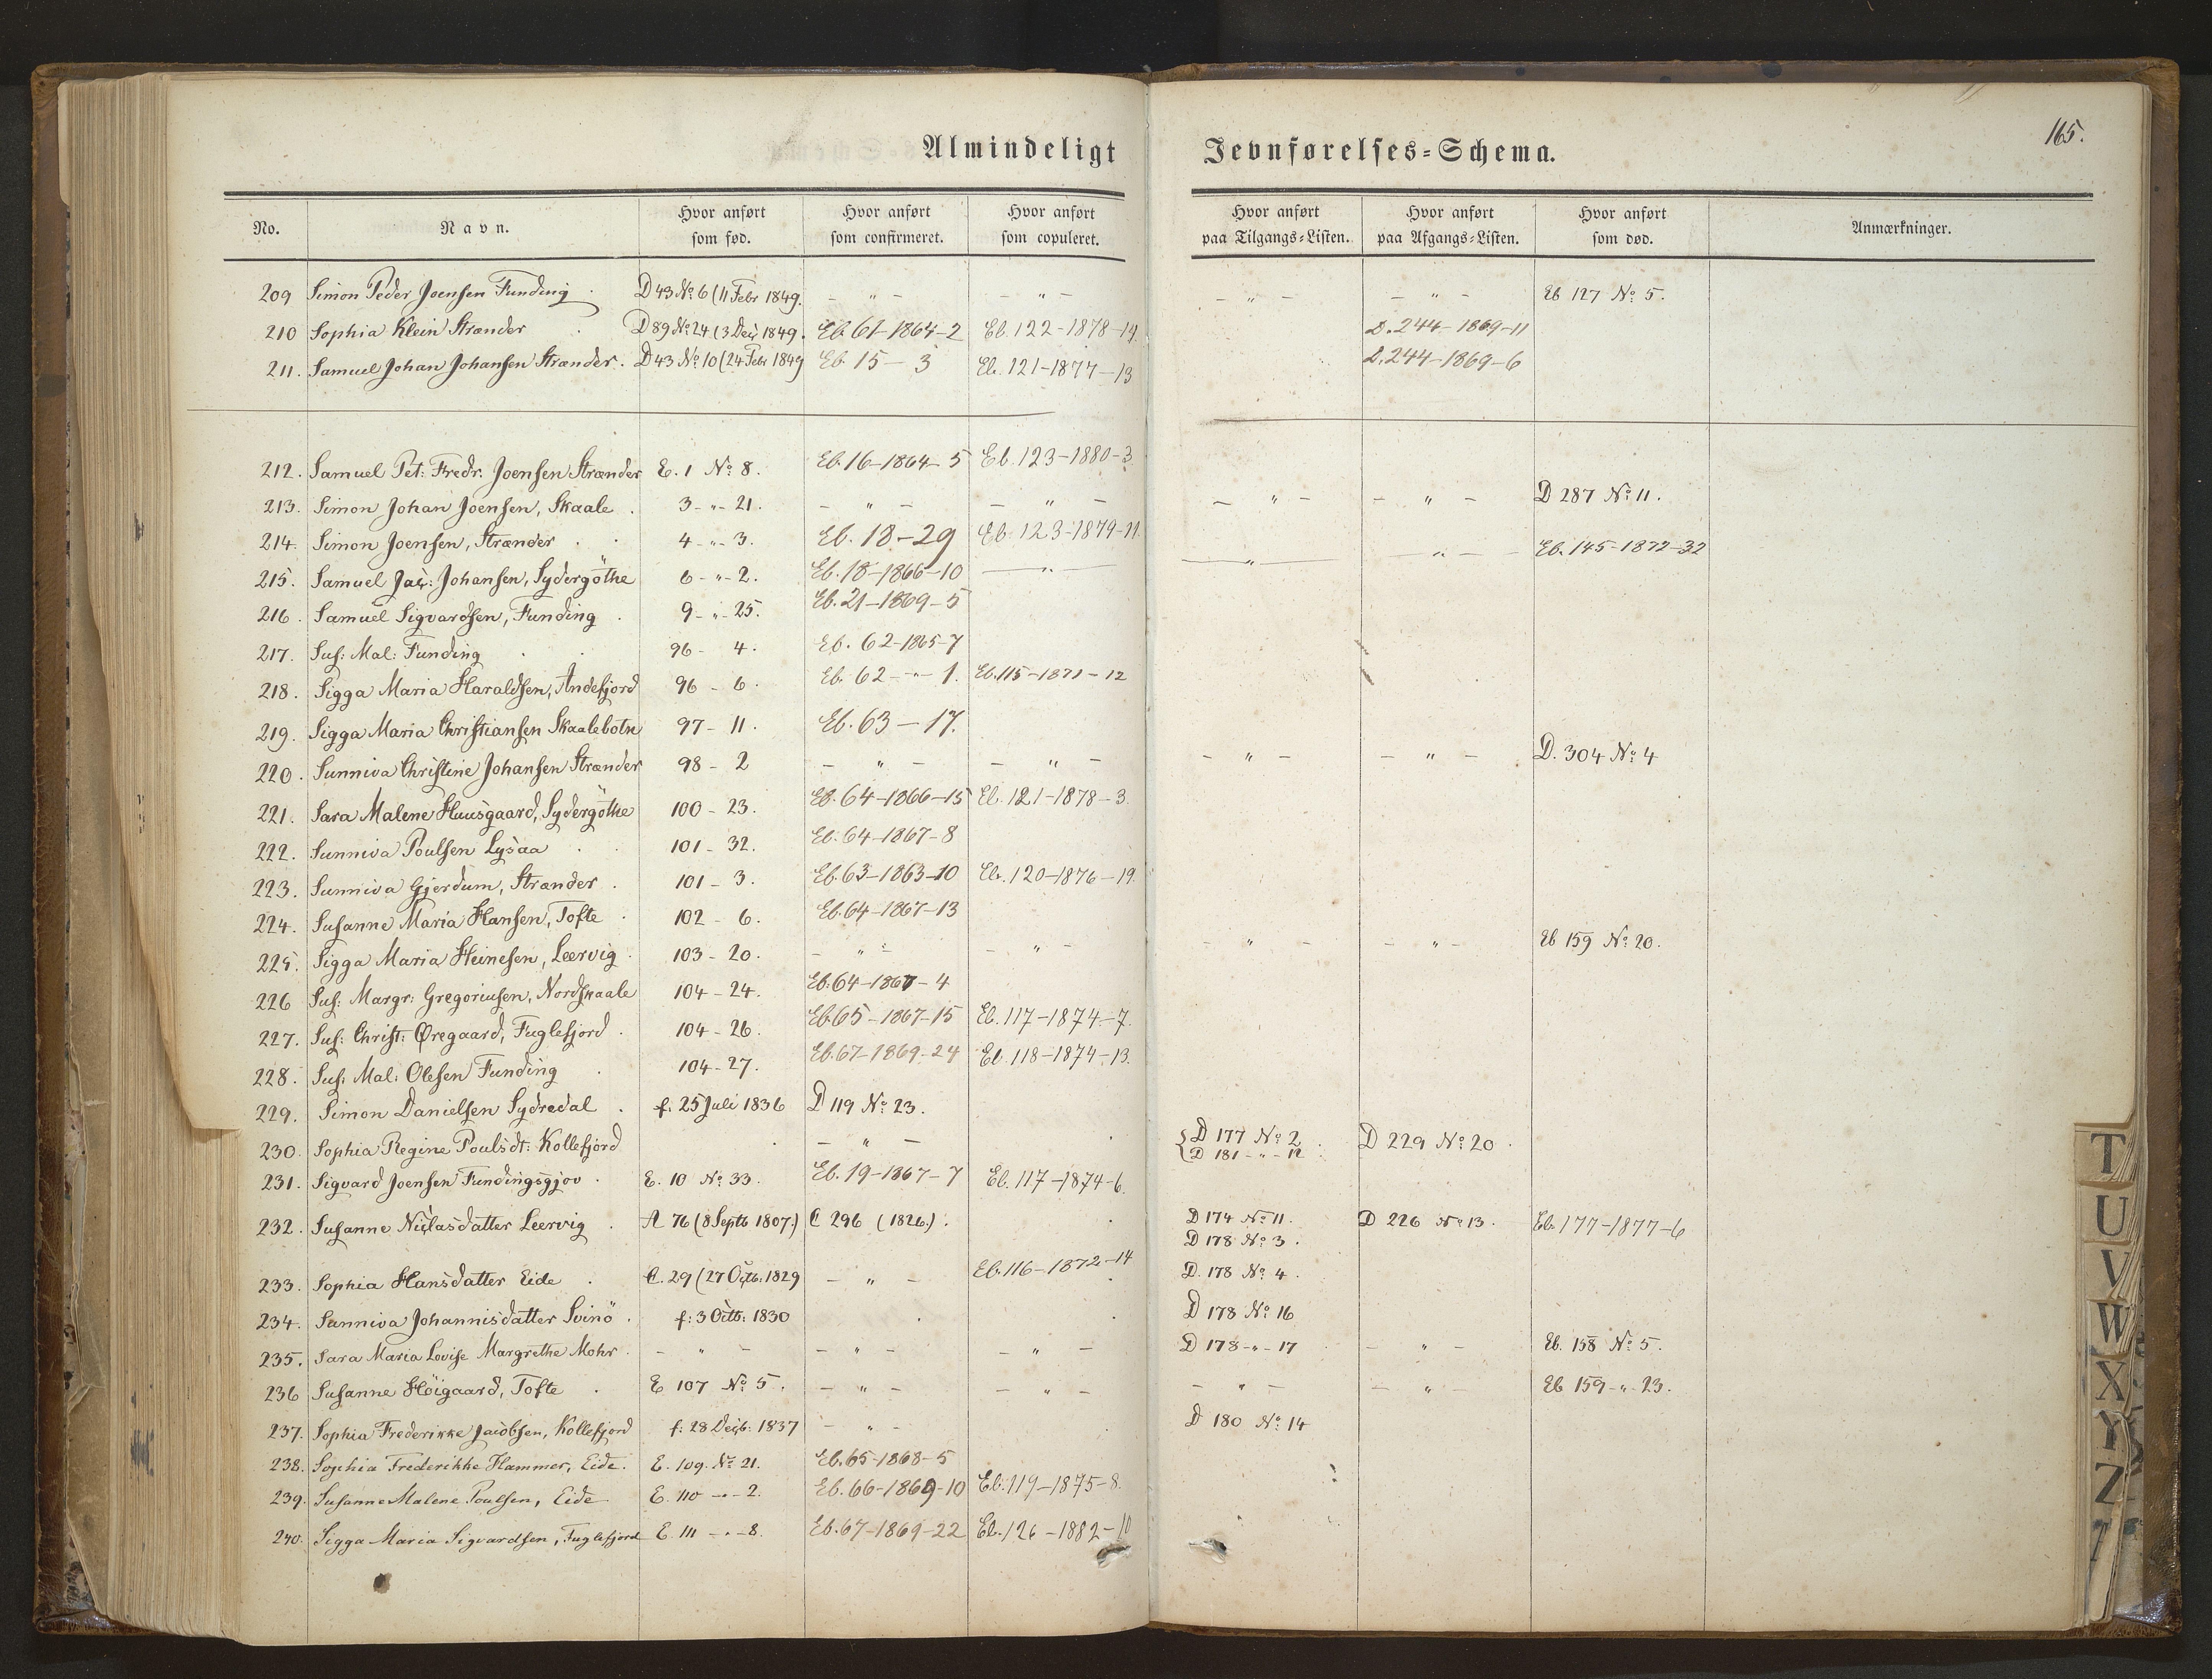 165.
Almindeligt Jevnførelses=Schema.
No. Navn. Hvor anført som fød. Hvor anført som confirmeret. Hvor anført som copuleret. Hvor anført paa Tilgangs=Listen. Hvor anført paa Afgangs=Listen. Hvor anført som død. Anmærkninger.
209 Simon Peder Joensen Funding . D 43 No 6 (11 Febr 1849. – " – – " – – " – – " – Eb 127 No 5.
210 Sophia Klein Strænder . D 89 No 24 (3 Dec 1849. Eb. 61-1864-2 Eb. 122-1878-19. D. 244-1869-11
211. Samuel Johan Johansen Strænder. D 43 No 10 (24 Febr 1849 Eb 15 – 3 Eb. 121-1877-13 D. 244-1869-6
212. Samuel Pet: Fredr. Joensen Strænder E. 1 No 8. Eb. 16-1864-5 Eb. 123-1880-3.
213. Simon Johan Joensen, Skaale . 3 - " - 21. – " – – " – – " – – " – D 287 No 11.
214. Simon Joensen, Strænder . . 4 - " - 3. Eb. 18-29 Eb. 123-1879-11. – " – – " – Eb. 145-1872-32
215. Samuel Jac: Johansen, Sydergöthe 6 - " - 2. Eb. 18-1866-10 – " –
216. Samuel Sigvardsen, Funding . 9 - " - 25. Eb. 21-1869-5
217. Sus: Mal: Funding . . 96 - 4. Eb. 62-1865-7
218. Sigga Maria Haraldsen, Andefjord 96 - 6. Eb. 62 - " - 1. Eb. 115-1871-12
219. Sigga Maria Christiansen Skaalebotn 97 - 11. Eb. 63 – 17.
220. Sunniva Christine Johansen Strænder 98 - 2 – " – – " – – " – – " – D. 304 No 4
221. Sara Malene Huusgaard, Sydergöthe 100 - 23. Eb. 64-1866-15 Eb. 121-1878-3.
222. Sunniva Poulsen Lysaa . . 101 - 32. Eb. 64-1867-8
223. Sunniva Gjerdum, Strænder . 101 - 3. Eb. 63-1863-10 Eb. 120-1876-19.
224. Susanne Maria Hansen, Tofte . 102 - 6. Eb. 64-1867-13
225. Sigga Maria Heinesen, Leervig . 103 - 20. – " – – " – – " – – " – Eb 159 No 20.
226 Sus: Margr: Gregoriusen, Nordskaale 104 - 24. Eb. 64-1867-4
227. Sus: Christ: Øregaard, Fuglefjord . 104 - 26. Eb 65-1867-15 Eb. 117-1874-7.
228. Sus: Mal: Olesen Funding . 104 - 27. Eb. 67-1869-24 Eb. 118-1874-13.
229. Simon Danielsen Sydredal . f: 25 Juli 1836 D 119 No 23.
230. Sophia Regine Poulsdt: Kollefjord . – " – . { D 177 No 2 . D 229 No 20 .
D 181 - " - 12 .
231. Sigvard Joensen Fundingsgjov . E. 10 No 33. Eb. 19-1867-7 Eb. 117-1874-6.
232. Susanne Niclasdatter Leervig . A 76 (8 Septb 1807.) C 296 (1826.). . D 174 No 11. D 226 No 13. Eb. 177-1877-6
D 178 No 3.
233. Sophia Hansdatter Eide . C. 29 (27 Octb: 1829 – " – Eb. 116-1872-14 D. 178 No 4.
234. Sunniva Johannisdatter Svinö . f: 3 Octb: 1830 . . D 178 No 16
235. Sara Maria Lovise Margrethe Mohr . – " – – " – – " – D 178 - " - 17 – " – Eb. 158 No 5.
236 Susanne Höigaard, Tofte . E 107 No 5. – " – – " – – " – – " – Eb 159 - " - 23.
237. Sophia Frederikke Jacobsen, Kollefjord f: 28 Decb: 1837 – " – D 180 No 14
238. Sophia Frederikke Hammer, Eide. E. 109. No 21. Eb. 65-1868-5
239. Susanne Malene Poulsen, Eide. E. 110 - " - 2. Eb. 66-1869-10 Eb. 119-1875-8.
240. Sigga Maria Sigvardsen, Fuglefjord E. 111 - " - 8. Eb. 67-1869-22 Eb. 126-1882-10
T
U
V
W
X
Y
Z